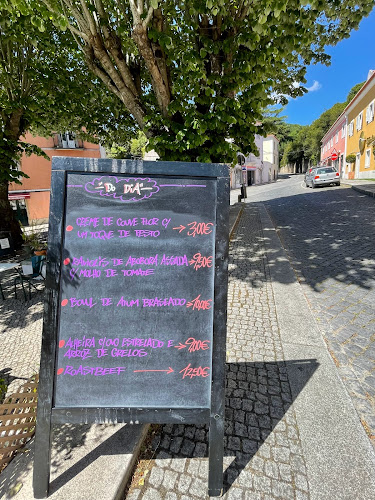 Do Dia
CREME DE COUVE FLOR C/ → 3,00€
UM TOQUE DE PESTO
DE ABÓBORA ASSADA → 9,50€
C/ MOLHO DE TOMATE
BOWL DE ATUM BRASEADO →
ALHEIRA C/OVO ESTRELADO E → 9,00€
ARROZ DE GRELOS
ROASTBEEF → 12,50€